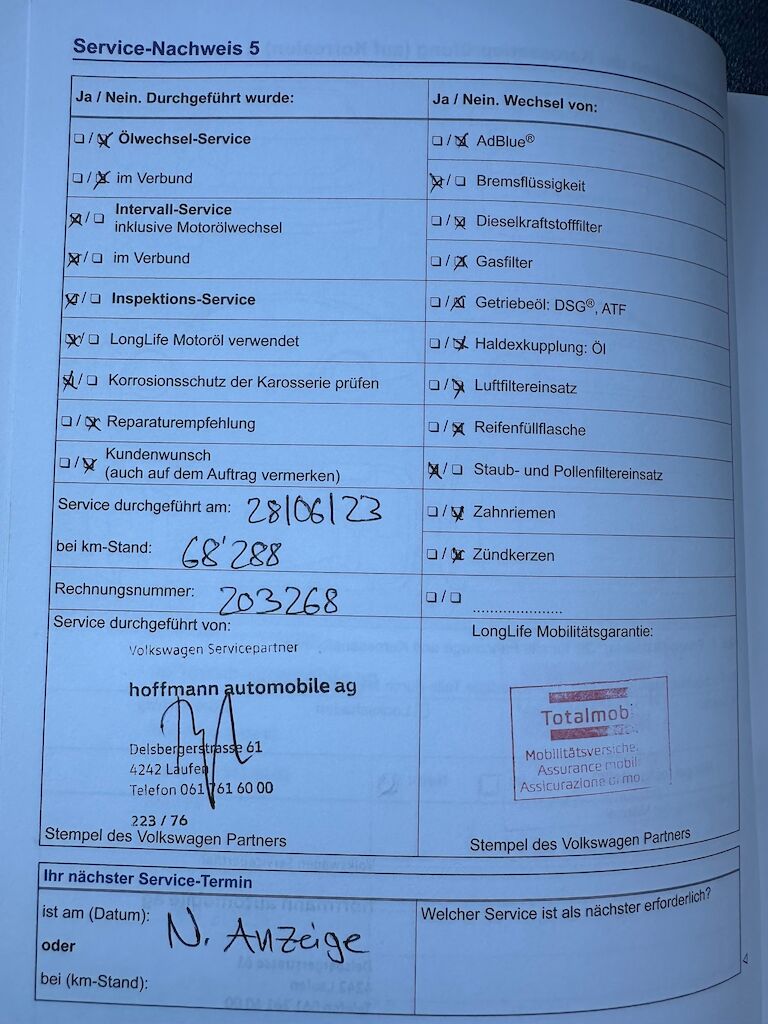 Service-Nachweis 5
Ja / Nein. Durchgeführt wurde:
☐ / ☒ Ölwechsel-Service
☐ / ☒ im Verbund
☒ / ☐ Intervall-Service
inklusive Motorölwechsel
☒ / ☐ im Verbund
☒ / ☐ Inspektions-Service
☒ / ☐ LongLife Motoröl verwendet
☒ / ☐ Korrosionsschutz der Karosserie prüfen
☐ / ☒ Reparaturempfehlung
☐ / ☒ Kundenwunsch
(auch auf dem Auftrag vermerken)
Service durchgeführt am: 28/06/23
bei km-Stand: 68'288
Rechnungsnummer: 203268
Service durchgeführt von:
Volkswagen Servicepartner
hoffmann automobile ag
Delsbergerstrasse 61
4242 Laufen
Telefon 061 761 60 00
223 / 76
Stempel des Volkswagen Partners
Ja / Nein. Wechsel von:
☐ / ☒ AdBlue®
☒ / ☐ Bremsflüssigkeit
☐ / ☒ Dieselkraftstofffilter
☐ / ☒ Gasfilter
☐ / ☒ Getriebeöl: DSG®, ATF
☐ / ☒ Haldexkupplung: Öl
☐ / ☒ Luftfiltereinsatz
☐ / ☒ Reifenfüllflasche
☒ / ☐ Staub- und Pollenfiltereinsatz
☐ / ☒ Zahnriemen
☐ / ☒ Zündkerzen
☐ / ☐ .....................
LongLife Mobilitätsgarantie:
Totalmob
Mobilitätsversiche
Assurance mobil
Assicurazione
Stempel des Volkswagen Partners
Ihr nächster Service-Termin
ist am (Datum): N. Anzeige
oder
bei (km-Stand):
Welcher Service ist als nächster erforderlich?